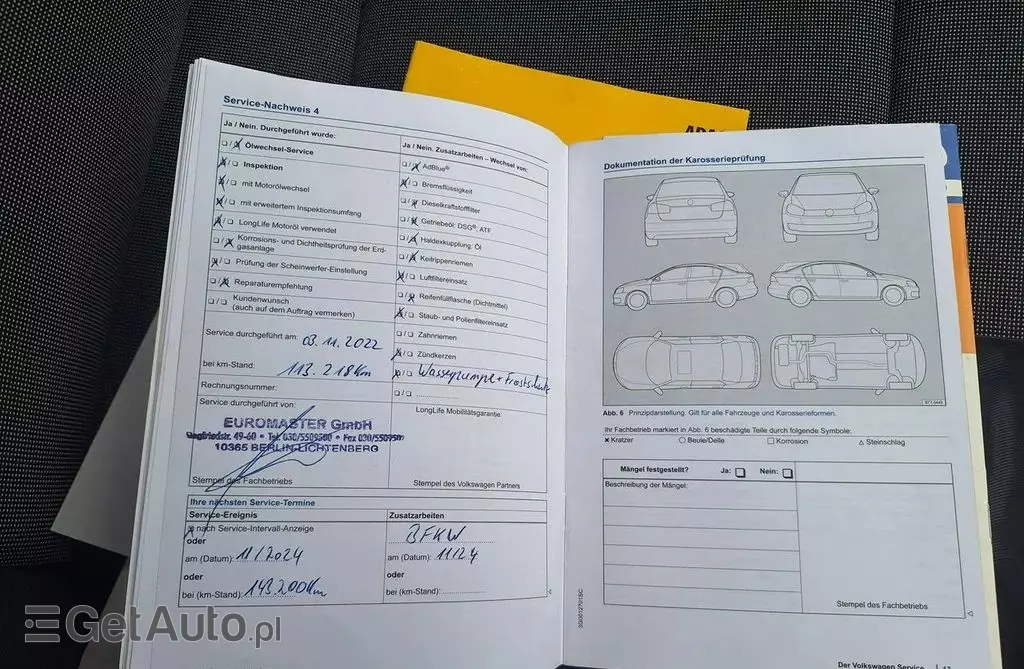 Service-Nachweis 4
Ja / Nein. Durchgeführt wurde:
Ölwechsel-Service
Inspektion
mit Motorölwechsel
mit erweitertem Inspektionsumfang
LongLife Motoröl verwendet
Korrosions- und Dichtheitsprüfung der Erd-
gasanlage
Prüfung der Scheinwerfer-Einstellung
Reparaturempfehlung
Kundenwunsch
(auch auf dem Auftrag vermerken)
Ja / Nein. Zusatzarbeiten – Wechsel von:
AdBlue®
Bremsflüssigkeit
Dieselkraftstofffilter
Getriebeöl: DSG®, ATF
Haldexkupplung: Öl
Keilrippenriemen
Luftfiltereinsatz
Reifenfüllflasche (Dichtmittel)
Staub- und Pollenfiltereinsatz
Zahnriemen
Zündkerzen
Wasserpumpe + Frostschutz
Service durchgeführt am: 03.11.2022
bei km-Stand: 113.218 Km
Rechnungsnummer:
Service durchgeführt von:
EUROMASTER GmbH
Siegfriedstr. 49-60 • Tel. 030/5509500 • Fax 030/550950
10365 BERLIN-LICHTENBERG
Stempel des Fachbetriebs
LongLife Mobilitätsgarantie:
Stempel des Volkswagen Partners
Ihre nächsten Service-Termine
Service-Ereignis
nach Service-Intervall-Anzeige
oder
am (Datum): 11/2024
oder
bei (km-Stand): 143.200 Km
Zusatzarbeiten
BFKW
am (Datum): 11/24
oder
bei (km-Stand):
Dokumentation der Karosserieprüfung
Abb. 6 Prinzipdarstellung. Gilt für alle Fahrzeuge und Karosserieformen.
Ihr Fachbetrieb markiert in Abb. 6 beschädigte Teile durch folgende Symbole:
Kratzer Beule/Delle Korrosion Steinschlag
Mängel festgestellt? Ja: Nein:
Beschreibung der Mängel:
Stempel des Fachbetriebs
3G0012701SC
Der Volkswagen Service
GetAuto.pl